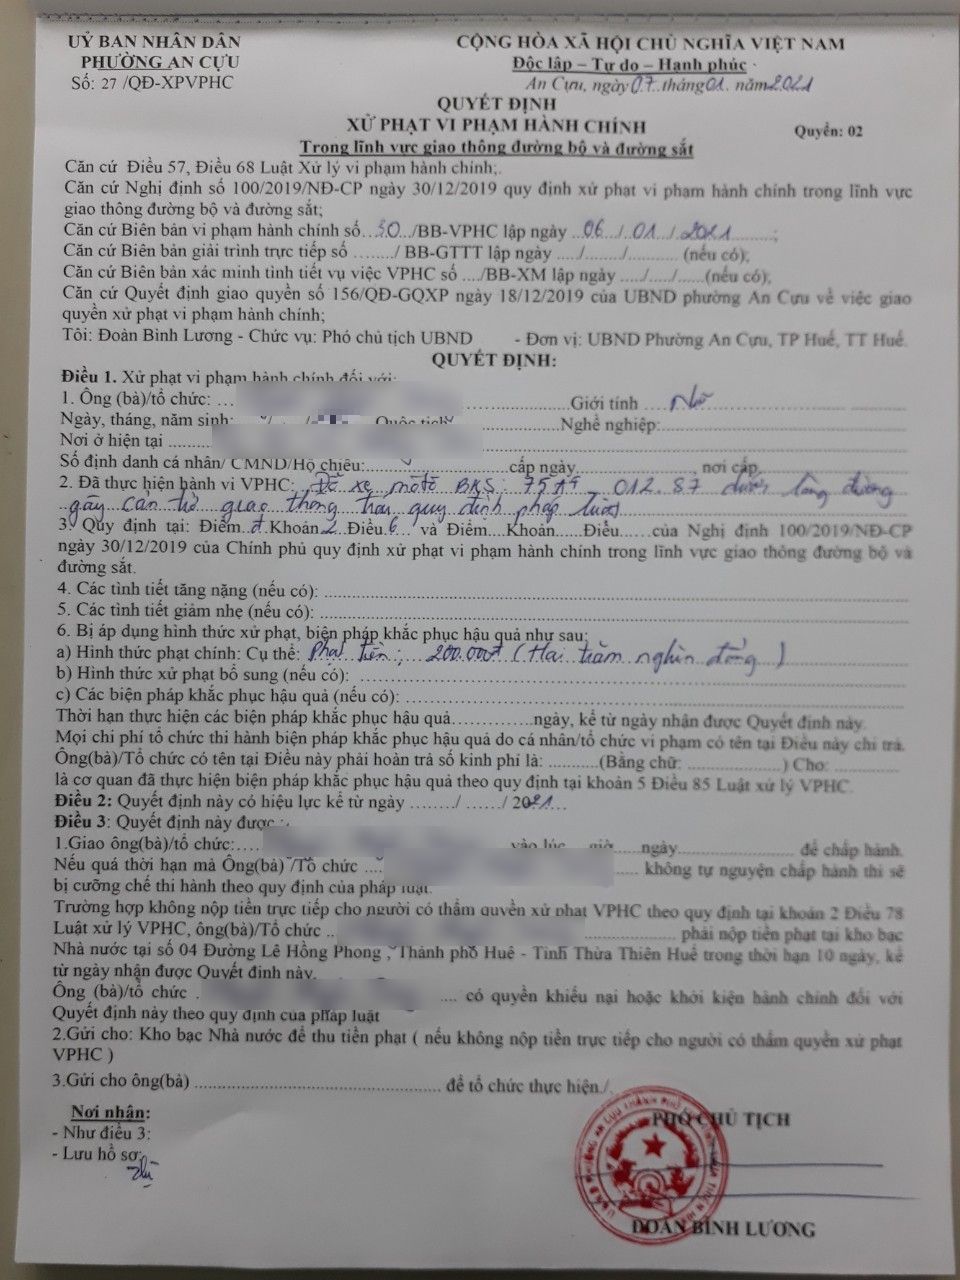 UỶ BAN NHÂN DÂN
PHƯỜNG AN CỰU
Số: 27 /QĐ-XPVPHC
CỘNG HÒA XÃ HỘI CHỦ NGHĨA VIỆT NAM
Độc lập – Tự do – Hạnh phúc
An Cựu, ngày 07 tháng 01. năm 2021
QUYẾT ĐỊNH
XỬ PHẠT VI PHẠM HÀNH CHÍNH
Quyển: 02
Trong lĩnh vực giao thông đường bộ và đường sắt
Căn cứ Điều 57, Điều 68 Luật Xử lý vi phạm hành chính;.
Căn cứ Nghị định số 100/2019/NĐ-CP ngày 30/12/2019 quy định xử phạt vi phạm hành chính trong lĩnh vực
giao thông đường bộ và đường sắt;
Căn cứ Biên bản vi phạm hành chính số...30.../BB-VPHC lập ngày ...06.../...01.../...2021...........;
Căn cứ Biên bản giải trình trực tiếp số ......../ BB-GTTT lập ngày ..../......./........... (nếu có);
Căn cứ Biên bản xác minh tình tiết vụ việc VPHC số ..../BB-XM lập ngày ..../...../.....(nếu có);
Căn cứ Quyết định giao quyền số 156/QĐ-GQXP ngày 18/12/2019 của UBND phường An Cựu về việc giao
quyền xử phạt vi phạm hành chính;
Tôi: Đoàn Bình Lương - Chức vụ: Phó chủ tịch UBND - Đơn vị: UBND Phường An Cựu, TP Huế, TT Huế.
QUYẾT ĐỊNH:
Điều 1. Xử phạt vi phạm hành chính đối với:
1. Ông (bà)/tổ chức: ... ....................Giới tính ....Nữ
Ngày, tháng, năm sinh: Quốc tịch ....................Nghề nghiệp:....................
Nơi ở hiện tại .........
Số định danh cá nhân/ CMND/Hộ chiếu:....................cấp ngày.................... nơi cấp
2. Đã thực hiện hành vi VPHC: Để xe môtô BKS: 75 012.87 dưới lòng đường
gây cản trở giao thông trái quy định pháp luật
3. Quy định tại: Điểm đ Khoản 2 Điều 6 và Điểm....Khoản......Điều......của Nghị định 100/2019/NĐ-CP
ngày 30/12/2019 của Chính phủ quy định xử phạt vi phạm hành chính trong lĩnh vực giao thông đường bộ và
đường sắt.
4. Các tình tiết tăng nặng (nếu có): ....................
5. Các tình tiết giảm nhẹ (nếu có): ....................
6. Bị áp dụng hình thức xử phạt, biện pháp khắc phục hậu quả như sau:
a) Hình thức phạt chính: Cụ thể: Phạt tiền; 200.000đ (Hai trăm nghìn đồng)
b) Hình thức xử phạt bổ sung (nếu có): ....................
c) Các biện pháp khắc phục hậu quả (nếu có): ....................
Thời hạn thực hiện các biện pháp khắc phục hậu quả..............ngày, kể từ ngày nhận được Quyết định này.
Mọi chi phí tổ chức thi hành biện pháp khắc phục hậu quả do cá nhân/tổ chức vi phạm có tên tại Điều này chi trả.
Ông(bà)/Tổ chức có tên tại Điều này phải hoàn trả số kinh phí là: ..........(Bằng chữ: ....................) Cho: ..............
là cơ quan đã thực hiện biện pháp khắc phục hậu quả theo quy định tại khoản 5 Điều 85 Luật xử lý VPHC.
Điều 2: Quyết định này có hiệu lực kể từ ngày ......../ ....../ 2021...
Điều 3: Quyết định này được
1.Giao ông(bà)/tổ chức:.... vào lúc giờ......ngày.................... để chấp hành.
Nếu quá thời hạn mà Ông(bà) /Tổ chức .... ...... không tự nguyện chấp hành thì sẽ
bị cưỡng chế thi hành theo quy định của pháp luật.
Trường hợp không nộp tiền trực tiếp cho người có thẩm quyền xử phạt VPHC theo quy định tại khoản 2 Điều 78
Luật xử lý VPHC, ông(bà)/Tổ chức .. .............. phải nộp tiền phạt tại kho bạc
Nhà nước tại số 04 Đường Lê Hồng Phong , Thành phố Huế - Tỉnh Thừa Thiên Huế trong thời hạn 10 ngày, kể
từ ngày nhận được Quyết định này.
Ông (bà)/tổ chức . .... có quyền khiếu nại hoặc khởi kiện hành chính đối với
Quyết định này theo quy định của pháp luật
2.Gửi cho: Kho bạc Nhà nước để thu tiền phạt ( nếu không nộp tiền trực tiếp cho người có thẩm quyền xử phạt
VPHC )
3.Gửi cho ông(bà) .............................. để tổ chức thực hiện./.
Nơi nhận:
- Như điều 3:
- Lưu hồ sơ:
PHÓ CHỦ TỊCH
ĐOÀN BÌNH LƯƠNG